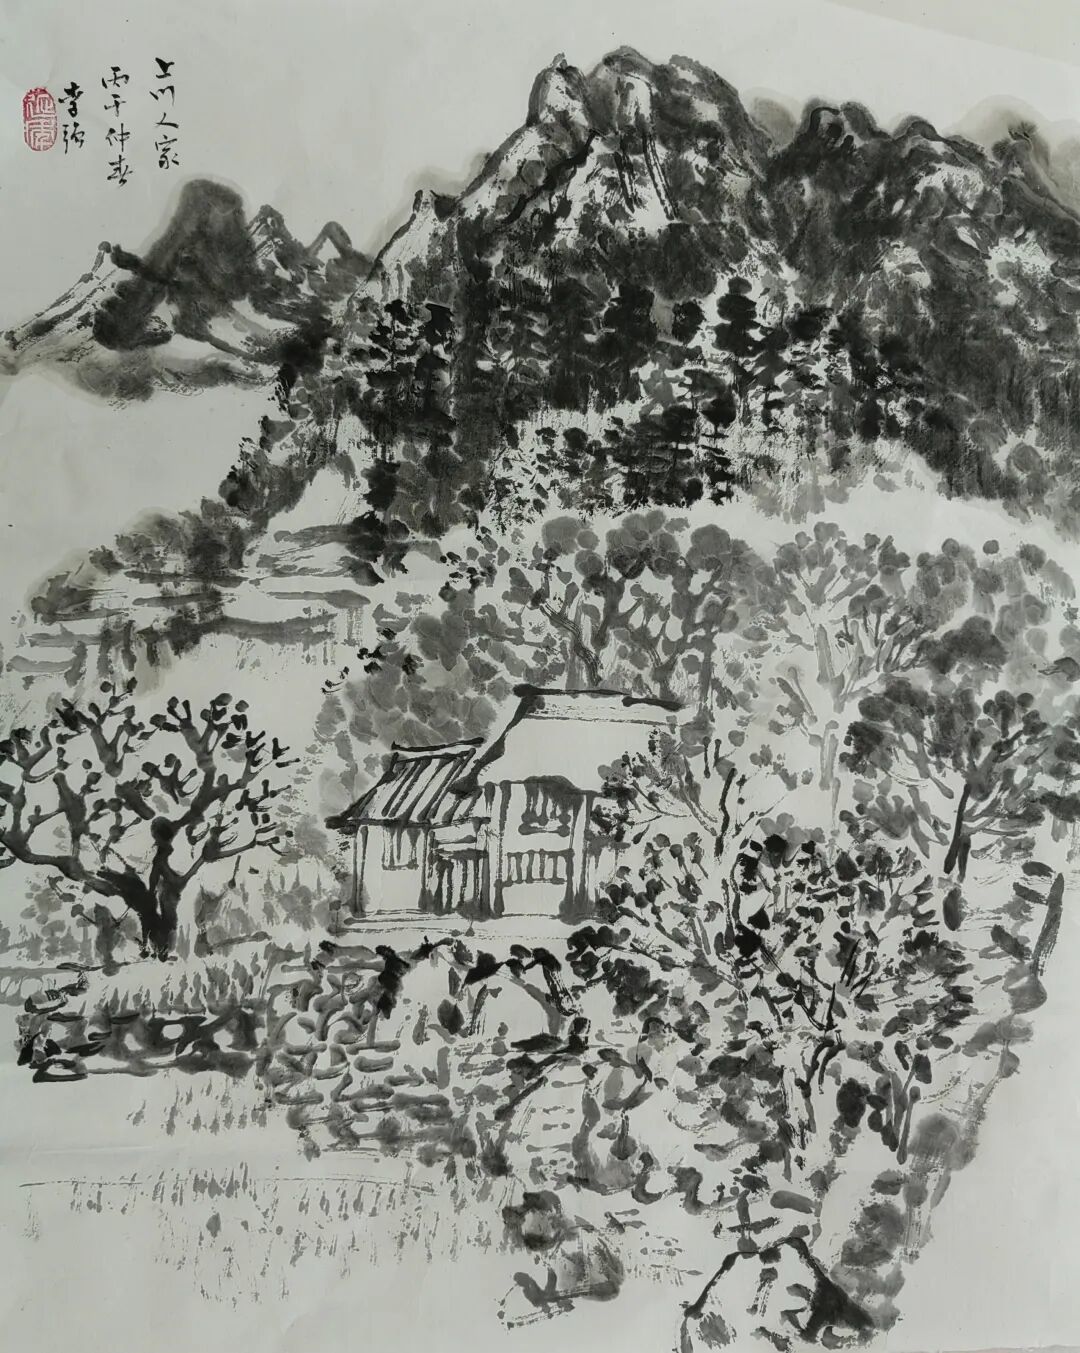 上川人家
丙午仲春
李强